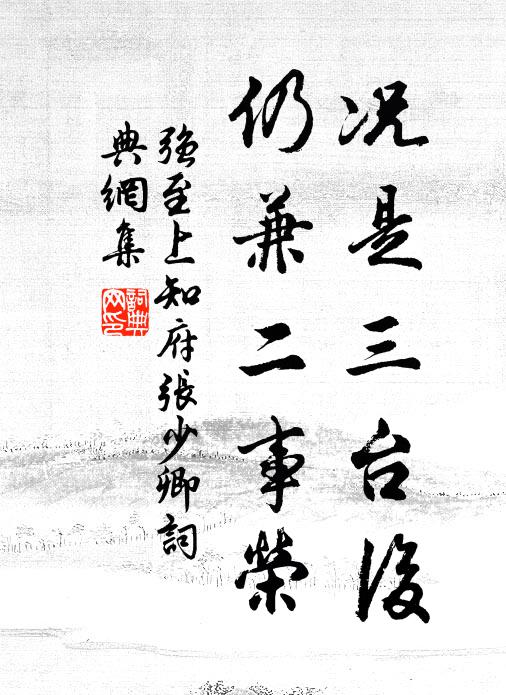 况是三台後
仍兼二事榮
強至上知府張少卿詞
典網集
詞典
网印